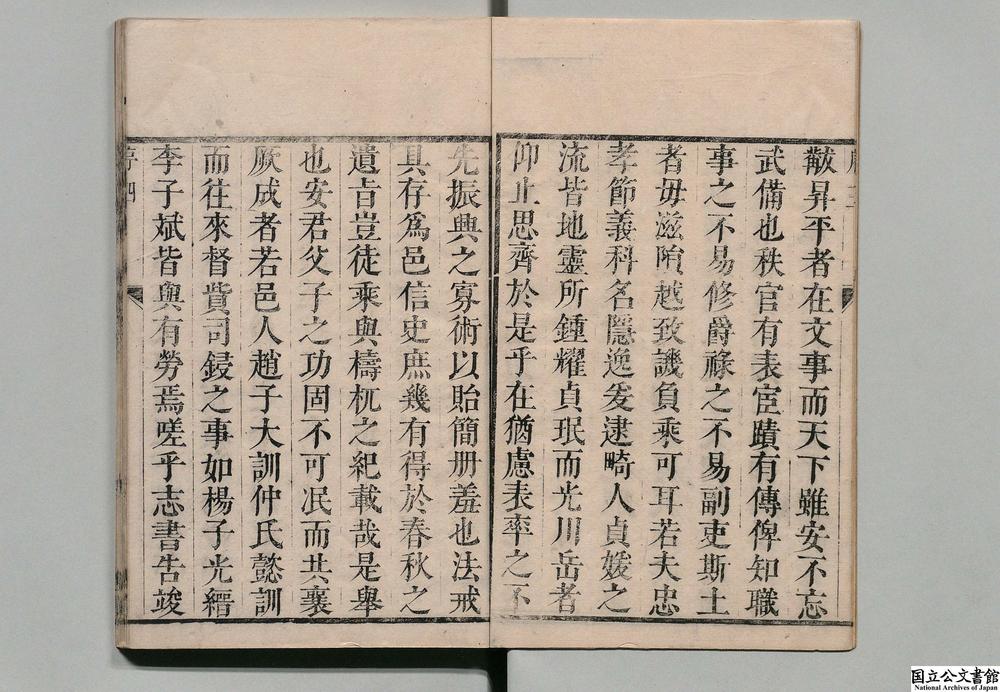 黻昇平者在文事而天下雖安不忘
武備也秩官有表宦蹟有傳俾知職
事之不易修爵祿之不易副吏斯土
者毋滋隕越致譏負乘可耳若夫忠
孝節義科名隱逸爰逮畸人貞媛之
流皆地靈所鍾耀貞珉而光川岳者
仰止思齊於是乎在猶慮表率之不
先振興之寡術以貽簡册羞也法戒
具存爲邑信史庶幾有得於春秋之
遺旨豈徒乘與檮杌之紀載哉是舉
也安君父子之功固不可泯而共襄
厥成者若邑人趙子大訓仲氏懿訓
而往來督貲司鋟之事如楊子光縉
李子斌皆與有勞焉嗟乎志書告竣
序四
国立公文書館
National Archives of Japan